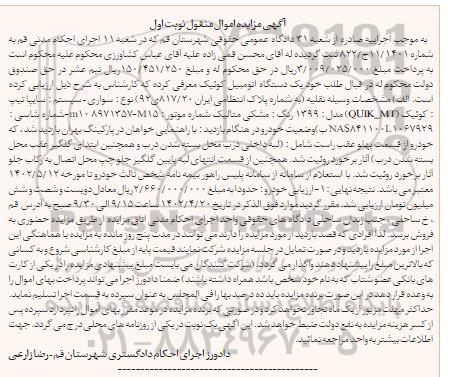 آگهی مزایده اموال منقول نوبت اول
به موجب اجراییه صادره از شعبه ۳۱ دادگاه عمومی حقوقی شهرستان قم که در شعبه ۱۱ اجرای احکام مدنی قم به
شماره ۱۱/۱۴۰۱-۸۲۲ ثبت گردیده له آقای محسن قمی زاده علیه آقای عباس کشاورزی محکوم علیه محکوم است
به پرداخت مبلغ ۳/۰۰۹/۰۲۵/۰۰۰ ریال در حق محکوم له و مبلغ ۱۵۰/۴۵۱/۲۵۰ ریال نیم عشر در حق صندوق
دولت محکوم له در قبال طلب خود یک دستگاه اتومبیل کوئیک معرفی کرده که کارشناس به شرح ذیل ارزیابی کرده
است. الف) مشخصات وسیله نقلیه (به شماره پلاک انتظامی ایران ۲۰-۸۱۷ی۹۲) نوع : سواری - سیستم : سایپا تیپ
: کوئیک (QUIK_MT) مدل : ۱۳۹۹ رنگ : مشکی متالیک شماره موتور : m۱۰۸۹۷۱۳۵۷-M۱۵ شماره شاسی :
NAS۸۴۱۱۰۰L۱۰۶۷۹۲۹ ب) وضعیت خودرو در هنگام بازدید : با راهنمایی خواهان در پارکینگ بهاران بازدید شد ، که
خودرو از قسمت پهلو عقب راست شامل : (لبه داخلی درب محل بسته شدن درب و همچنین ابتدای گلگیر عقب محل
بسته شدن درب) آثار برخورد روئیت شد. همچنین از قسمت انتهای لبه پایین گلگیر جلو چپ محل اتصال به رکاب جلو
آثار برخورد روئیت شد. با استعلام از سامانه از سامانه پلیس راهور بیمه نامه شخص ثالث خودرو تا مورخه ۱۴۰۲/۵/۱۲
معتبر می باشد. نتیجه نهایی : ۱- ارزیابی خودرو : حدودا به مبلغ ۲/۶۶۰/۰۰۰/۰۰۰ ریال معادل دویست و شصت و شش
میلیون تومان ارزیابی شد. مقرر گردید موارد فوق الذکر در تاریخ ۱۴۰۲/۴/۲۰ ساعت ۹/۱۵ الی ۹/۳۰ صبح به آدرس قم
، خ ساحلی ، جنب زندان ساحلی دادگاه های حقوقی واحد اجرای احکام مدنی اتاق مزایده از طریق مزایده حضوری به
فروش برسد. لذا افرادی که قصد بازدید از مورد مزایده را دارند می توانند در مدت پنج روز مانده به مزایده با هماهنگی این
اجرا از مورد مزایده بازدید و در صورت تمایل در جلسه مزایده شرکت نمایند قیمت پایه از مبلغ کارشناسی شروع و به کسانی
که بالاترین مبلغ را پیشنهاد دهند واگذار می گردد. (شرکت کنندگان می بایست مبلغ پیشنهادی مزایده را در یکی از کارت
های بانکی عضو شتاب که به نام خود شخص باشد همراه داشته باشند) ضمنا دادورز اجرا می تواند پرداخت بهای اموال را
به وعده قرار دهد در این صورت برنده مزایده باید ده درصد بها را فی المجلس به عنوان سپرده به قسمت اجرا تسلیم نماید.
حداکثر مهلت مزبور از یک ماه تجاوز نخواهد کرد و در صورتی که برنده مزایده در موعد مقرر بهای اموال را نپردازد سپرده پس
از کسر هزینه مزایده به نفع دولت ضبط خواهد شد. این آگهی یک نوبت در یکی از روزنامه های محلی درج می گردد. جهت
اطلاعات بیشتر به واحد مراجعه نمائید.
دادورز اجرای احکام دادگستری شهرستان قم-رضا زارعی